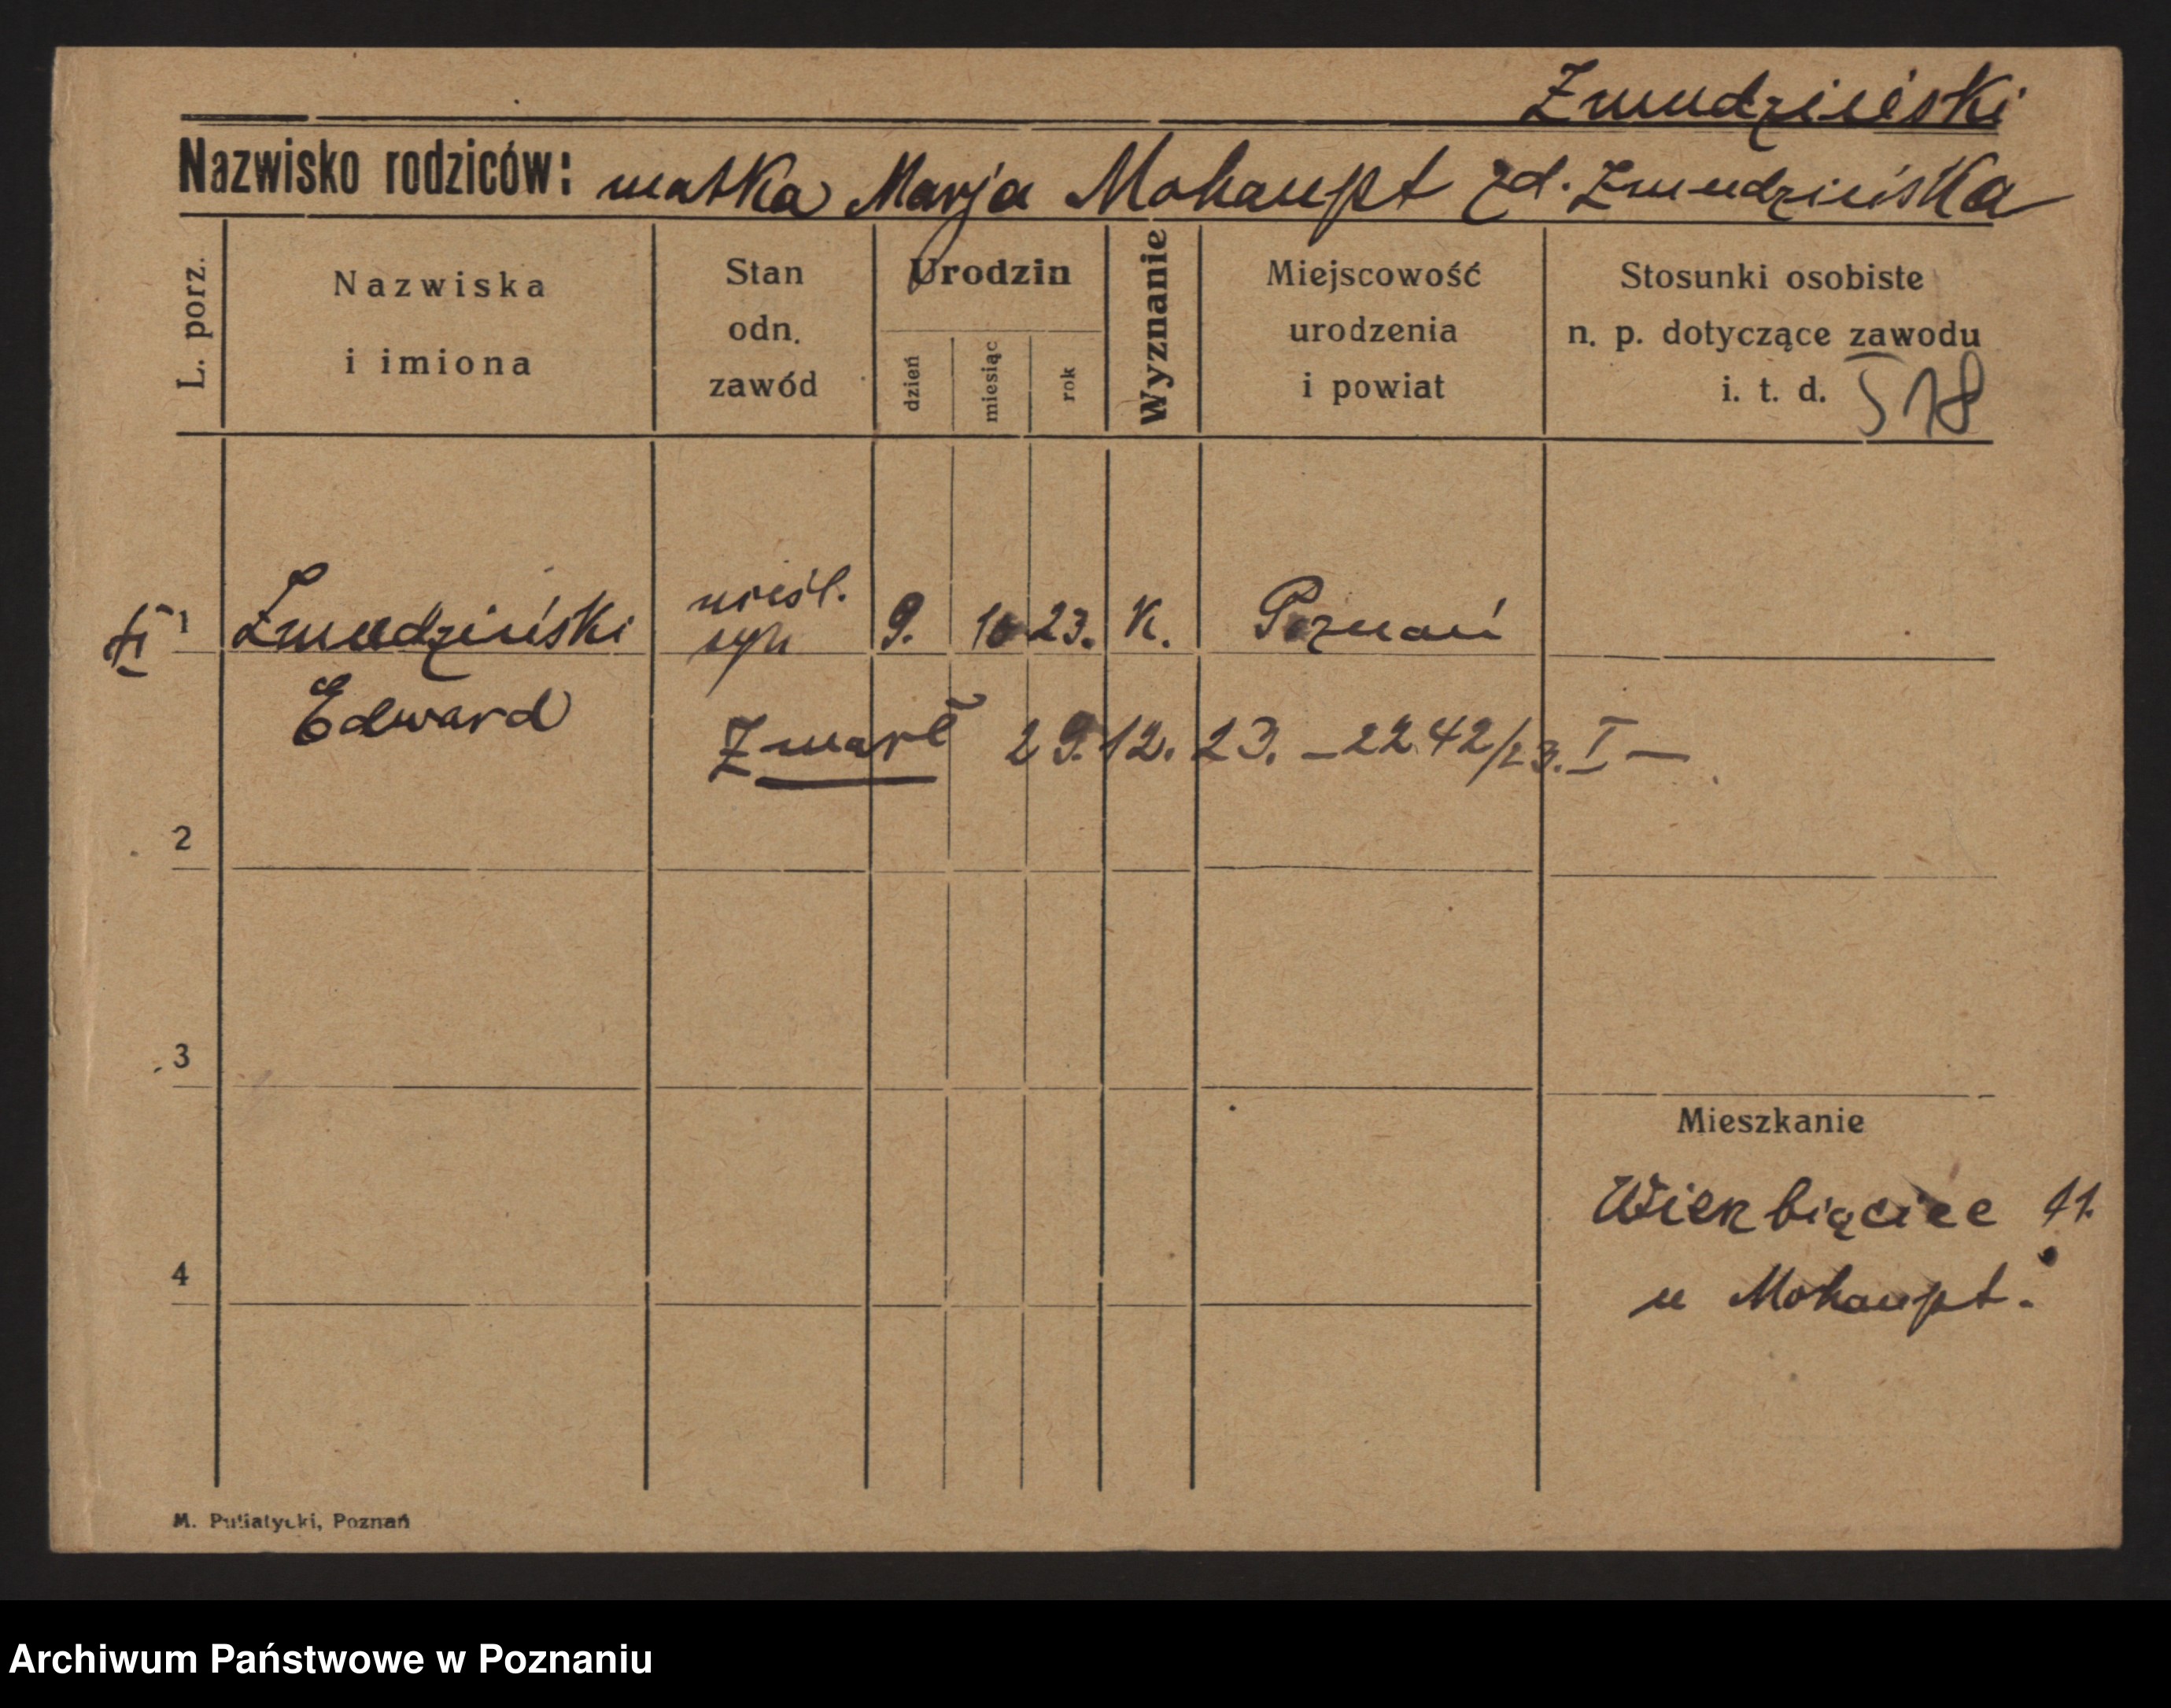 Zmudziński
Nazwisko rodziców: matka Marja Mohaupt zd. Zmudzińska
L. porz.
Nazwiska
i imiona
Stan
odn.
zawód
Urodzin
dzień
miesiąc
rok
Wyznanie
Miejscowość
urodzenia
i powiat
Stosunki osobiste
n. p. dotyczące zawodu
i. t. d. 518
1 Zmudziński nieśl. syn 9. 10 23. K. Poznań
Edward
Zmarł 29.12.23. – 2242/23. I –
2
3
4
Mieszkanie
Wierzbięcice 11.
u Mohaupt.
M. Putiatycki, Poznań
Archiwum Państwowe w Poznaniu